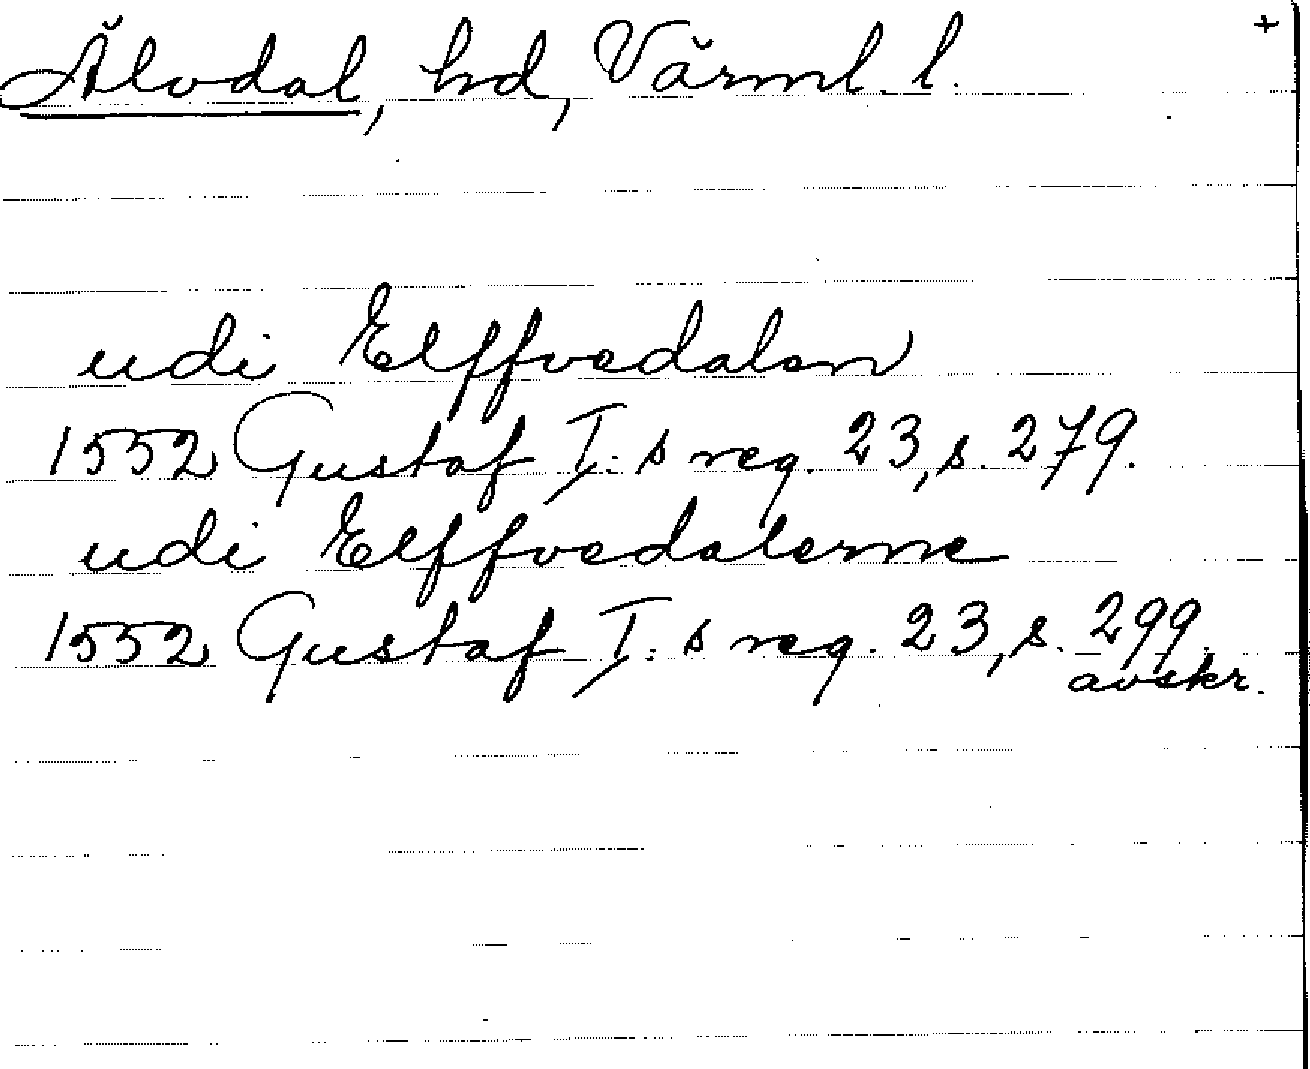 Älvdal, hd, Värml. l. +
udi Elffvedalen
1552 Gustaf I:s reg. 23, s. 279.
udi Elffvedalerne
1552 Gustaf I:s reg. 23, s. 299
avskr.